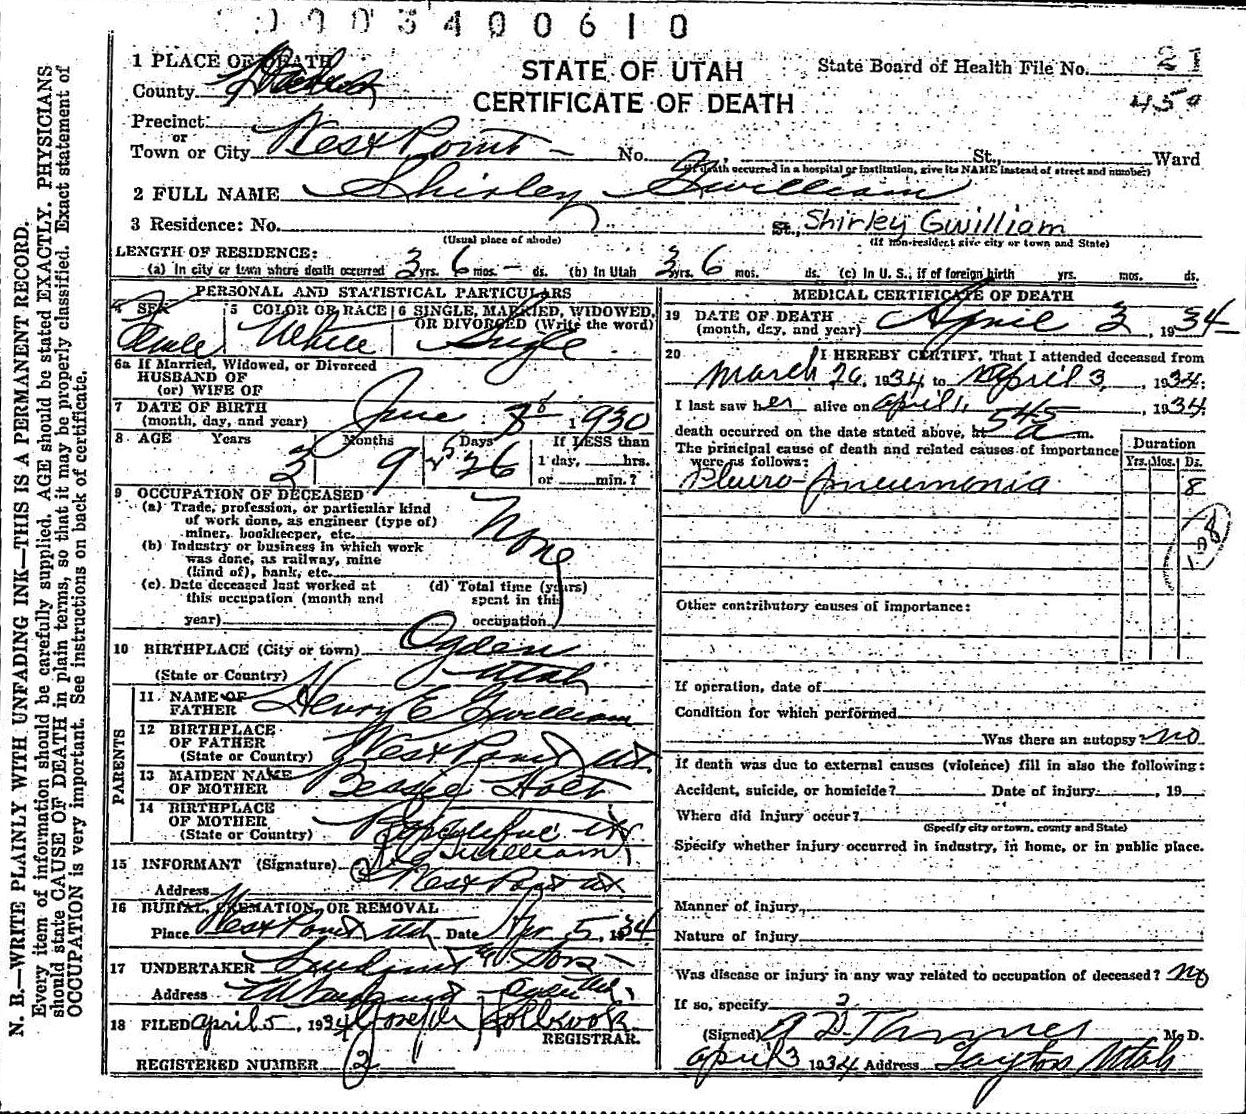 0003400610
1 PLACE OF DEATH
County
STATE OF UTAH
CERTIFICATE OF DEATH
State Board of Health File No. 21
450
Precinct
or
Town or City West Point - No. St., Ward
(If death occurred in a hospital or institution, give its NAME instead of street and number)
2 FULL NAME Shirley Gwilliam
3 Residence: No. St., Shirley Gwilliam
(Usual place of abode) (If non-resident give city or town and State)
LENGTH OF RESIDENCE:
(a) In city or town where death occurred 3 yrs. 6 mos. - ds. (b) In Utah 3 yrs. 6 mos. ds. (c) In U. S., if of foreign birth yrs. mos. ds.
PERSONAL AND STATISTICAL PARTICULARS
4 SEX 5 COLOR OR RACE 6 SINGLE, MARRIED, WIDOWED, OR DIVORCED (Write the word)
Female White Single
6a If Married, Widowed, or Divorced
HUSBAND OF
(or) WIFE OF
7 DATE OF BIRTH
(month, day, and year) June 8 1930
8 AGE Years Months Days If LESS than
3 9 26 1 day, hrs.
or min.?
9 OCCUPATION OF DECEASED
(a) Trade, profession, or particular kind
of work done, as engineer (type of)
miner, bookkeeper, etc. None
(b) Industry or business in which work
was done, as railway, mine
(kind of), bank, etc.
(c) Date deceased last worked at (d) Total time (years)
this occupation (month and spent in this
year) occupation
10 BIRTHPLACE (City or town) Ogden
(State or Country) Utah
PARENTS
11 NAME OF
FATHER Henry E Gwilliam
12 BIRTHPLACE
OF FATHER
(State or Country) West Point Ut.
13 MAIDEN NAME
OF MOTHER Bessie Holt
14 BIRTHPLACE
OF MOTHER
(State or Country) Ut
15 INFORMANT (Signature) Gwilliam
Address West Point Ut
16 BURIAL, CREMATION, OR REMOVAL
Place West Point Utah Date Apr 5, 1934
17 UNDERTAKER & Sons
Address Ogden Utah
18 FILED April 5, 1934 Joseph Holbrook
REGISTRAR.
REGISTERED NUMBER 2
MEDICAL CERTIFICATE OF DEATH
19 DATE OF DEATH
(month, day, and year) April 3, 1934
20 I HEREBY CERTIFY, That I attended deceased from
March 26, 1934 to April 3, 1934;
I last saw her alive on April 1, 1934
death occurred on the date stated above, at 545 a m.
The principal cause of death and related causes of importance
were as follows:
Duration
Yrs. Mos. Ds.
Pleuro-Pneumonia 8
108
Other contributory causes of importance:
If operation, date of
Condition for which performed
Was there an autopsy? no
If death was due to external causes (violence) fill in also the following:
Accident, suicide, or homicide? Date of injury , 19
Where did injury occur?
(Specify city or town, county and State)
Specify whether injury occurred in industry, in home, or in public place.
Manner of injury
Nature of injury
Was disease or injury in any way related to occupation of deceased? no
If so, specify
(Signed) M. D.
April 3 1934 Address Layton Utah
N. B.—WRITE PLAINLY WITH UNFADING INK—THIS IS A PERMANENT RECORD.
Every item of information should be carefully supplied. AGE should be stated EXACTLY. PHYSICIANS
should state CAUSE OF DEATH in plain terms, so that it may be properly classified. Exact statement of
OCCUPATION is very important. See instructions on back of certificate.